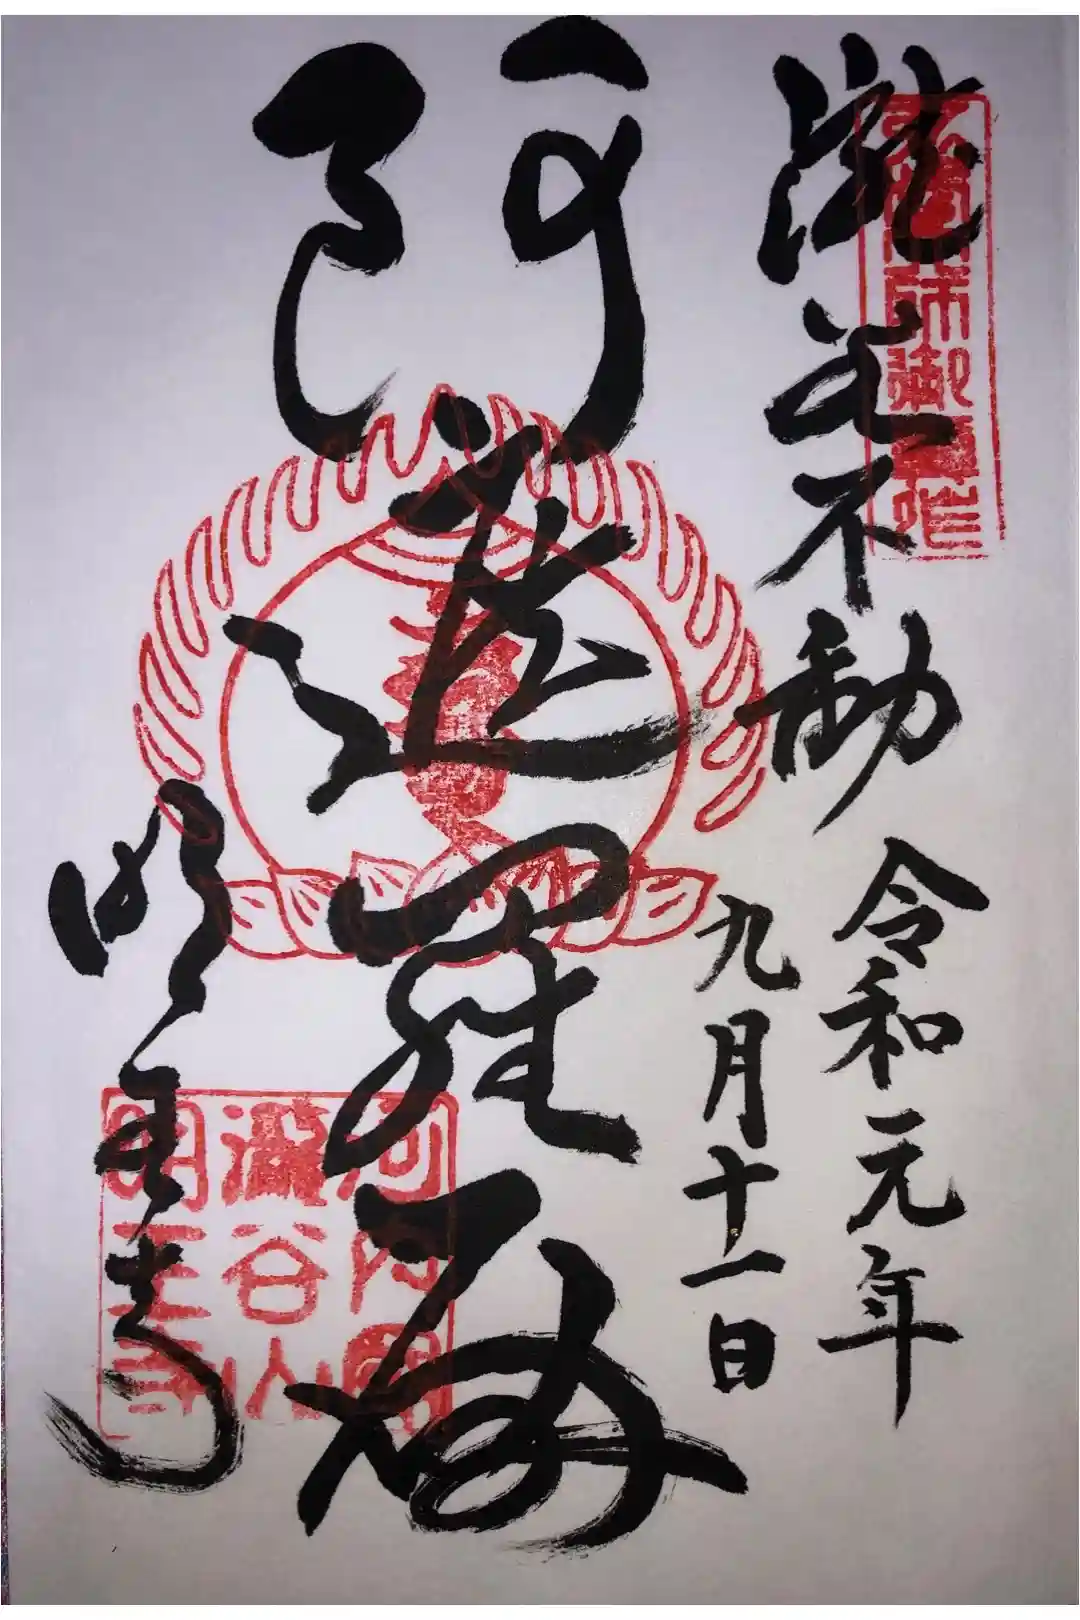 瀧谷不動
令和元年
九月十一日
阿遮羅殿
明王寺
河内國
瀧谷山
明王寺